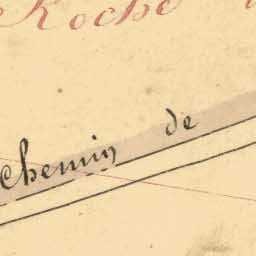 Roche
Chemin de